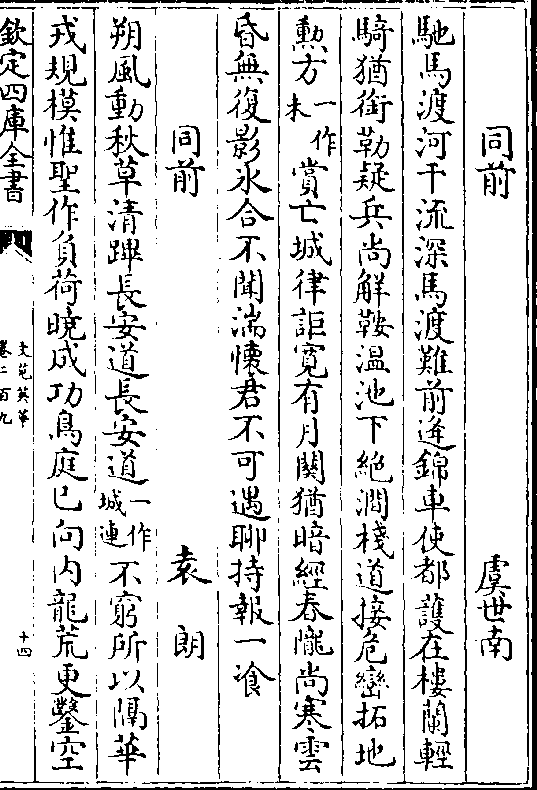 同前 虞世南
馳馬渡河干流深馬渡難前逢錦車使都護在樓蘭輕
騎猶銜勒疑兵尚解鞍温池下絶澗棧道接危巒拓地
勲方一作未賞亡城律詎寛有月關猶暗經春隴尚寒雲
昏無復影冰合不聞湍懷君不可遇聊持報一飡
同前 袁朗
朔風動秋草清蹕長安道長安道一作城連不窮所以隔華
戎規模惟聖作負荷曉成功鳥庭已向内龍荒更鑿空
欽定四庫全書
文苑英華
卷二百九
十四